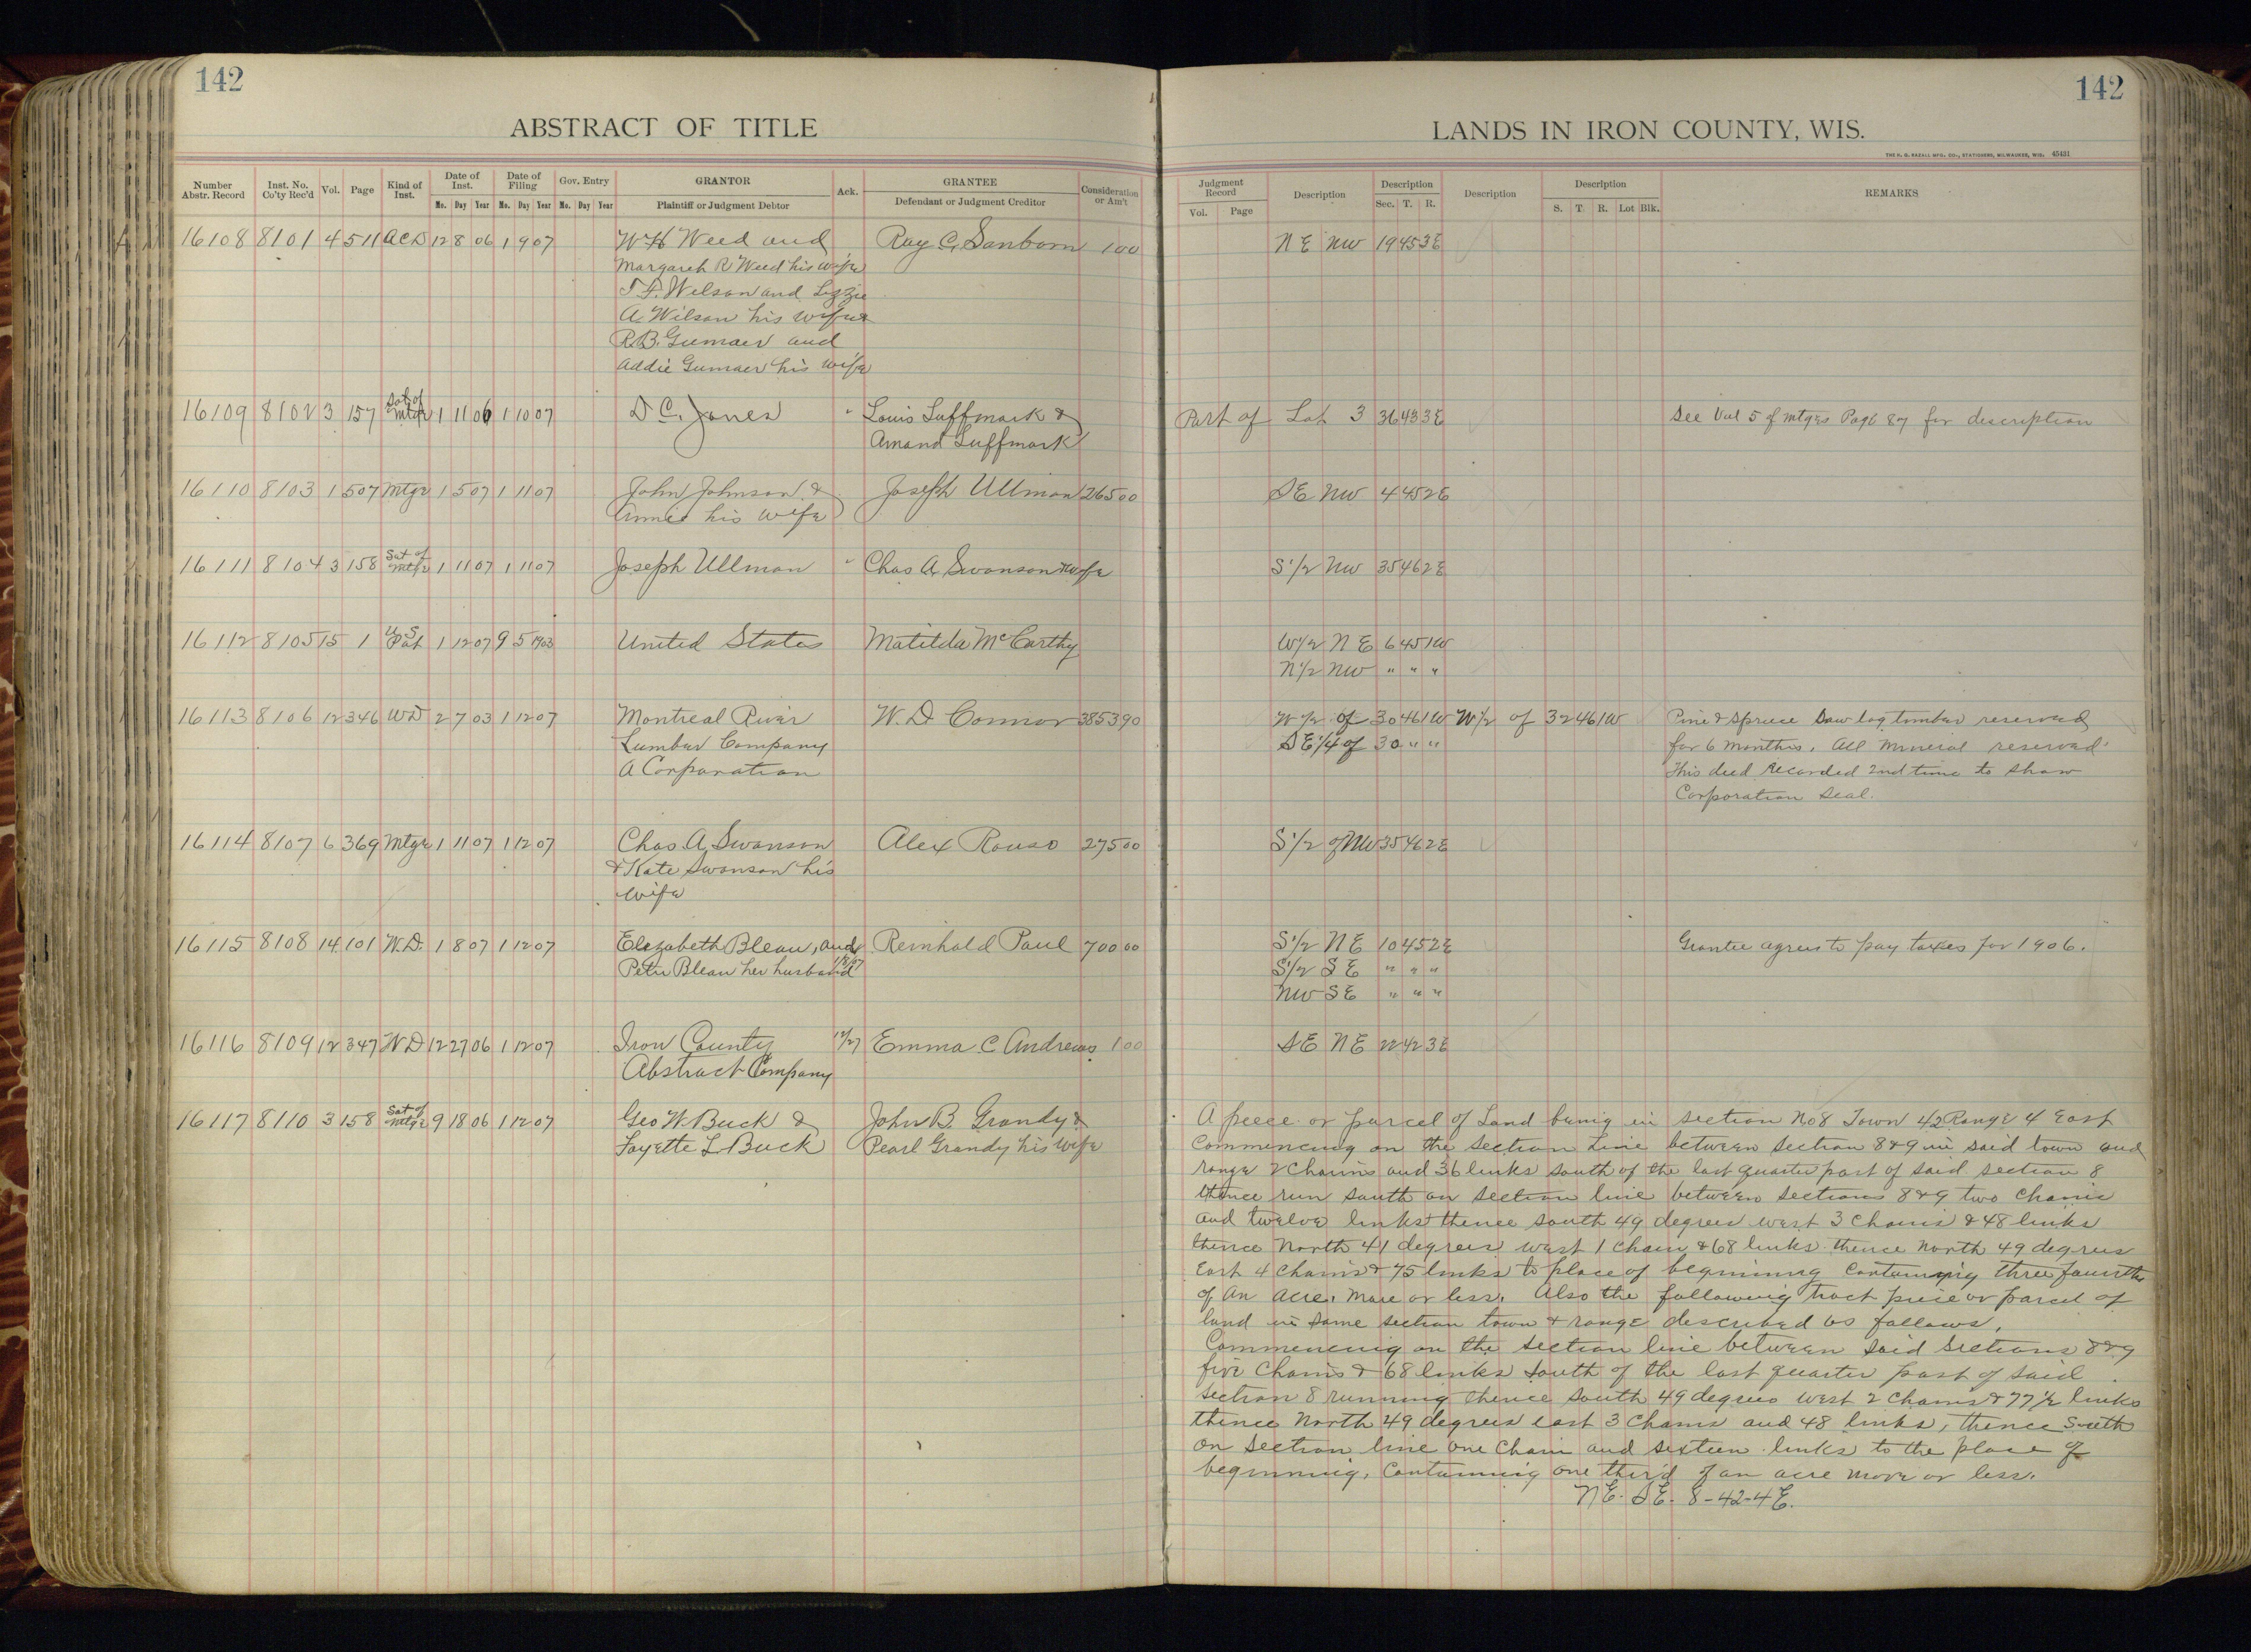 142
142
ABSTRACT OF TITLE
LANDS IN IRON COUNTY, WIS.
THE H. G. RAZALL MFG. CO., STATIONERS, MILWAUKEE, WIS. 45431
Number Abstr. Record Inst. No. Co'ty Rec'd Vol. Page Kind of Inst. Date of Inst. Date of Filing Gov. Entry GRANTOR Ack. GRANTEE Consideration or Am't
Mo. Day Year Mo. Day Year Mo. Day Year Plaintiff or Judgment Debtor Defendant or Judgment Creditor
Judgment Record Description Description Description Description REMARKS
Vol. Page Sec. T. R. S. T. R. Lot Blk.
16108 8101 4 511 ACD 12 8 06 1 9 07 W H Weed and Ray C. Sanborn 1 00 N E NW 19 45 3E
Margareh R Weed his wife
T. F. Wilson and Lizzie
A. Wilson his wife &
R.B. Gumaer and
Addie Gumaer his wife
16109 8102 3 157 Sat of Mtge 1 11 06 1 10 07 D C. Jones " Louis Luffmark & Part of Lot 3 36 43 3E See Vol 5 of Mtges Page 87 for description
Amand Luffmark
16110 8103 1 507 Mtge 1 5 07 1 11 07 John Johnson & Joseph Ullman 265 00 SE NW 4 45 2E
Annie his wife
16111 8104 3 158 Sat of Mtge 1 11 07 1 11 07 Joseph Ullman " Chas A. Swanson & wife S 1/2 NW 35 46 2E
16112 8105 15 1 U S Pat 1 12 07 9 5 1903 United States Matilda McCarthy W 1/2 N E 6 45 1W
N 1/2 NW " " "
16113 8106 12 346 WD 2 7 03 1 12 07 Montreal River W. D Connor 3853 90 W 1/2 of 30 46 1W W 1/2 of 32 46 1W Pine & spruce Saw log timber reserved
Lumber Company SE 1/4 of 30 " " for 6 months. All Mineral reserved.
A Corporation This deed Recorded 2nd time to show
Corporation Seal.
16114 8107 6 369 Mtge 1 11 07 1 12 07 Chas. A. Swanson Alex Rouso 275 00 S 1/2 of NW 35 46 2E
& Kate Swanson his
wife
16115 8108 14 101 W.D. 1 8 07 1 12 07 Elezabeth Bleau, and Reinhold Paul 700 00 S 1/2 N E 10 45 2E Grantee agrees to pay taxes for 1906.
Peter Bleau her husband 1/8/07 S 1/2 S E " " "
NW S E " " "
16116 8109 12 347 W D 12 27 06 1 12 07 Iron County 12/27 Emma C Andrews 1 00 SE NE 22 42 3E
Abstract Company
16117 8110 3 158 Sat of Mtge 9 18 06 1 12 07 Geo W. Buck & John B. Grandy &
Fayette L Buck Pearl Grandy his wife
A peece or parcel of Land being in section No 8 Town 42 Range 4 East
Commencing on the section Line between section 8 & 9 in said town and
range 2 Chains and 36 links south of the last quarter part of said section 8
thence run south on section line between sections 8 & 9 two Chains
and twelve links thence south 49 degrees west 3 Chains & 48 links
thence North 41 degrees west 1 chain & 68 links thence North 49 degrees
East 4 Chains & 75 links to place of beginning Containing three fourths
of an acre. More or less. Also the following tract peice or parcel of
land in same section town & range described as follows.
Commencing on the section line between said sections 8 & 9
five Chains & 68 links south of the last quarter part of said
section 8 running thence south 49 degrees west 2 Chains & 77 1/2 links
thence North 49 degrees east 3 Chains and 48 links, thence South
on section line one Chain and sixteen links to the place of
beginning, Containing one third of an acre more or less.
NE. SE. 8-42-4E.